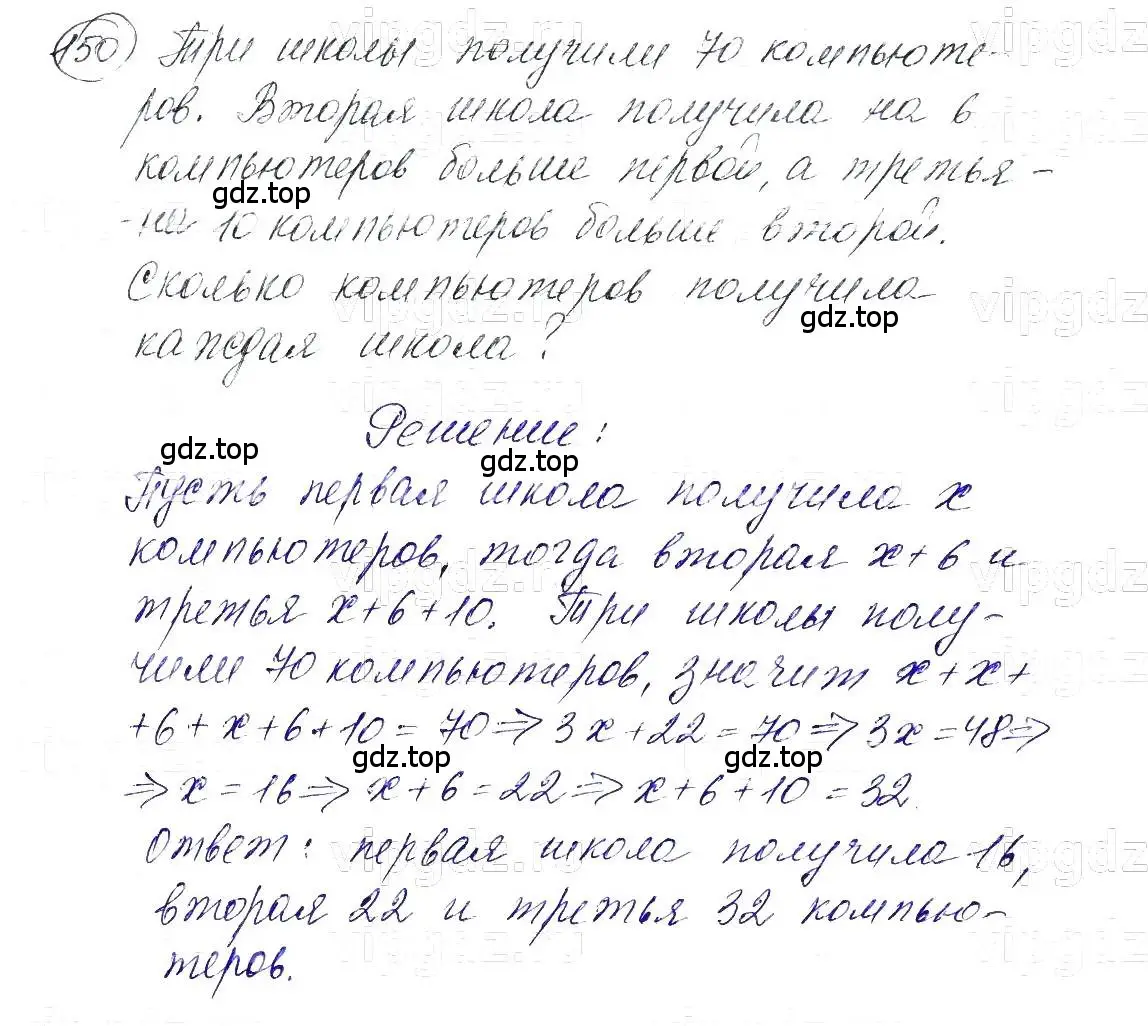 150 Три школы получили 70 компьюте-
ров. Вторая школа получила на 6
компьютеров больше первой, а третья -
gdz.top
- на 10 компьютеров больше второй.
Сколько компьютеров получила
gdz.top
каждая школа?
Решение:
gdz.top
gdz.top
Пусть первая школа получила x
компьютеров, тогда вторая x+6 и
третья x+6+10. Три школы полу-
чили 70 компьютеров, значит x+x+
+6+x+6+10=70⇒3x+22=70⇒3x=48⇒
gdz.top
gdz.top
⇒x=16⇒x+6=22⇒x+6+10=32.
Ответ: первая школа получила 16,
вторая 22 и третья 32 компью-
теров.